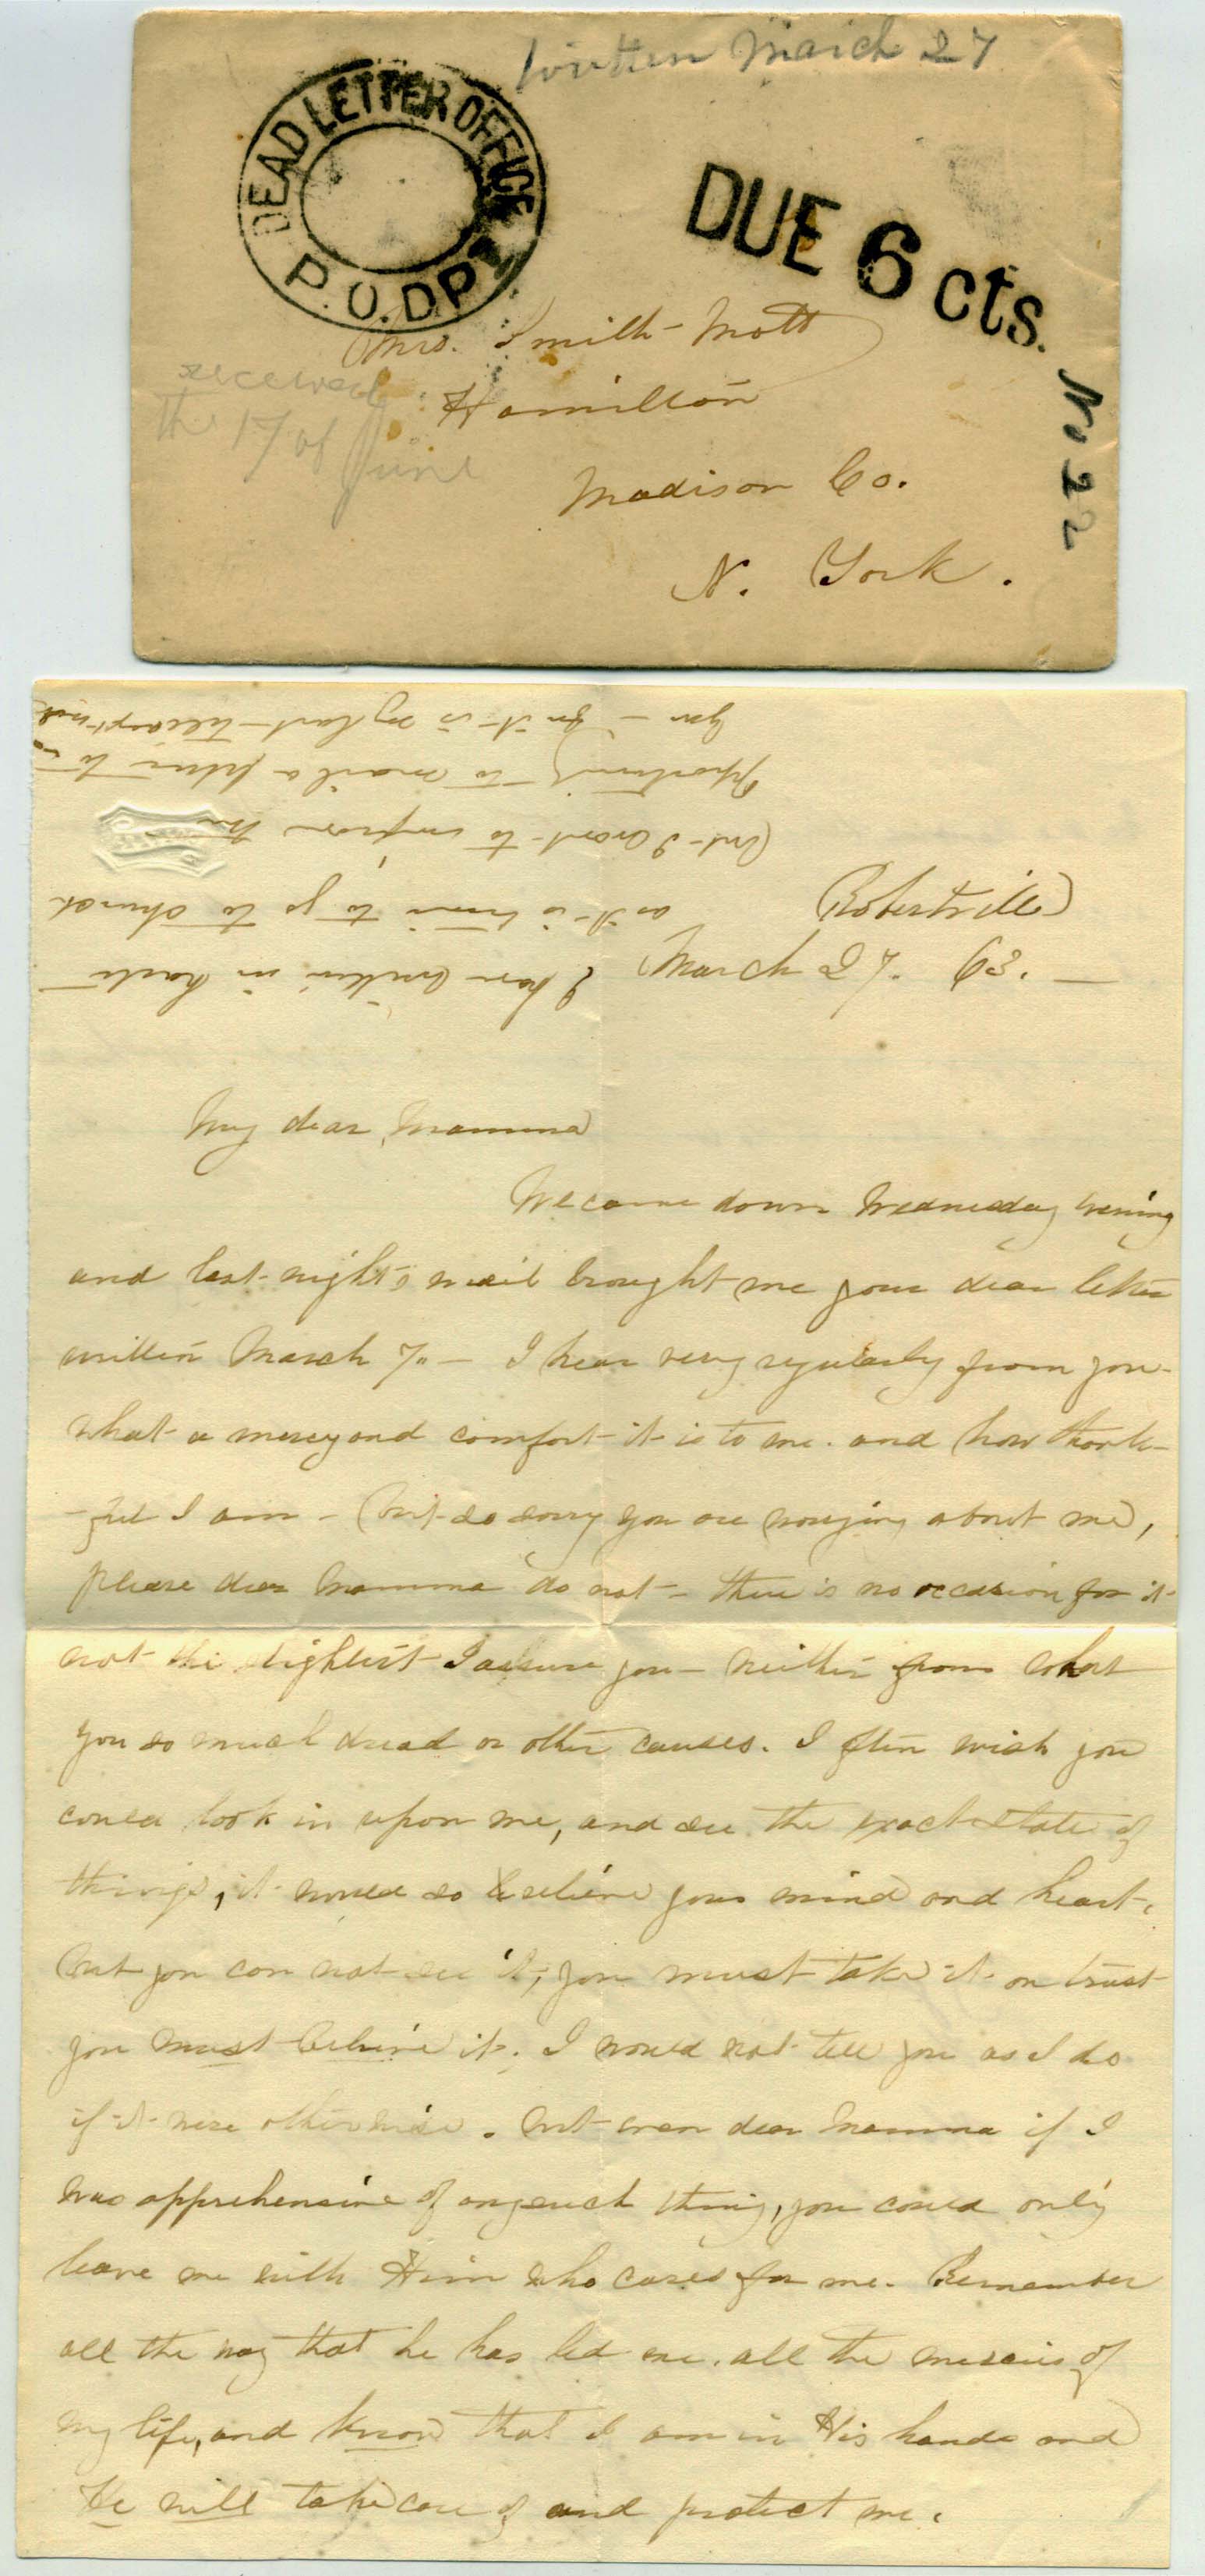 written March 27
DEAD LETTER OFFICE
P.O. DPT.
DUE 6 cts.
Mrs. Smith Mott
Hamilton
Madison Co.
N. York.
received
the 17 of June
No 22
Robertville
March 27. 63. —
My dear Mamma
We came down Wednesday evening
and last night's mail brought me your dear letter
written March 7. — I hear very regularly from you -
what a mercy and comfort it is to me. and how thank-
-ful I am - but so sorry you are worrying about me,
please dear Mamma do not - there is no occasion for it
not the slightest I assure you - neither from what
you so much dread or other causes. I often wish you
could look in upon me, and see the exact state of
things, it would so relieve your mind and heart.
But you can not see it, you must take it on trust
you must believe it. I would not tell you as I do
if it were otherwise. but even dear Mamma if I
was apprehensive of any such thing, you could only
leave me with Him who cares for me. Remember
all the way that he has led me. all the mercies of
my life, and know that I am in His hands and
He will take care of and protect me.
I have written in haste
as it is time to go to church
But I want to improve the
opportunity to mail a letter to
you - for it is my last